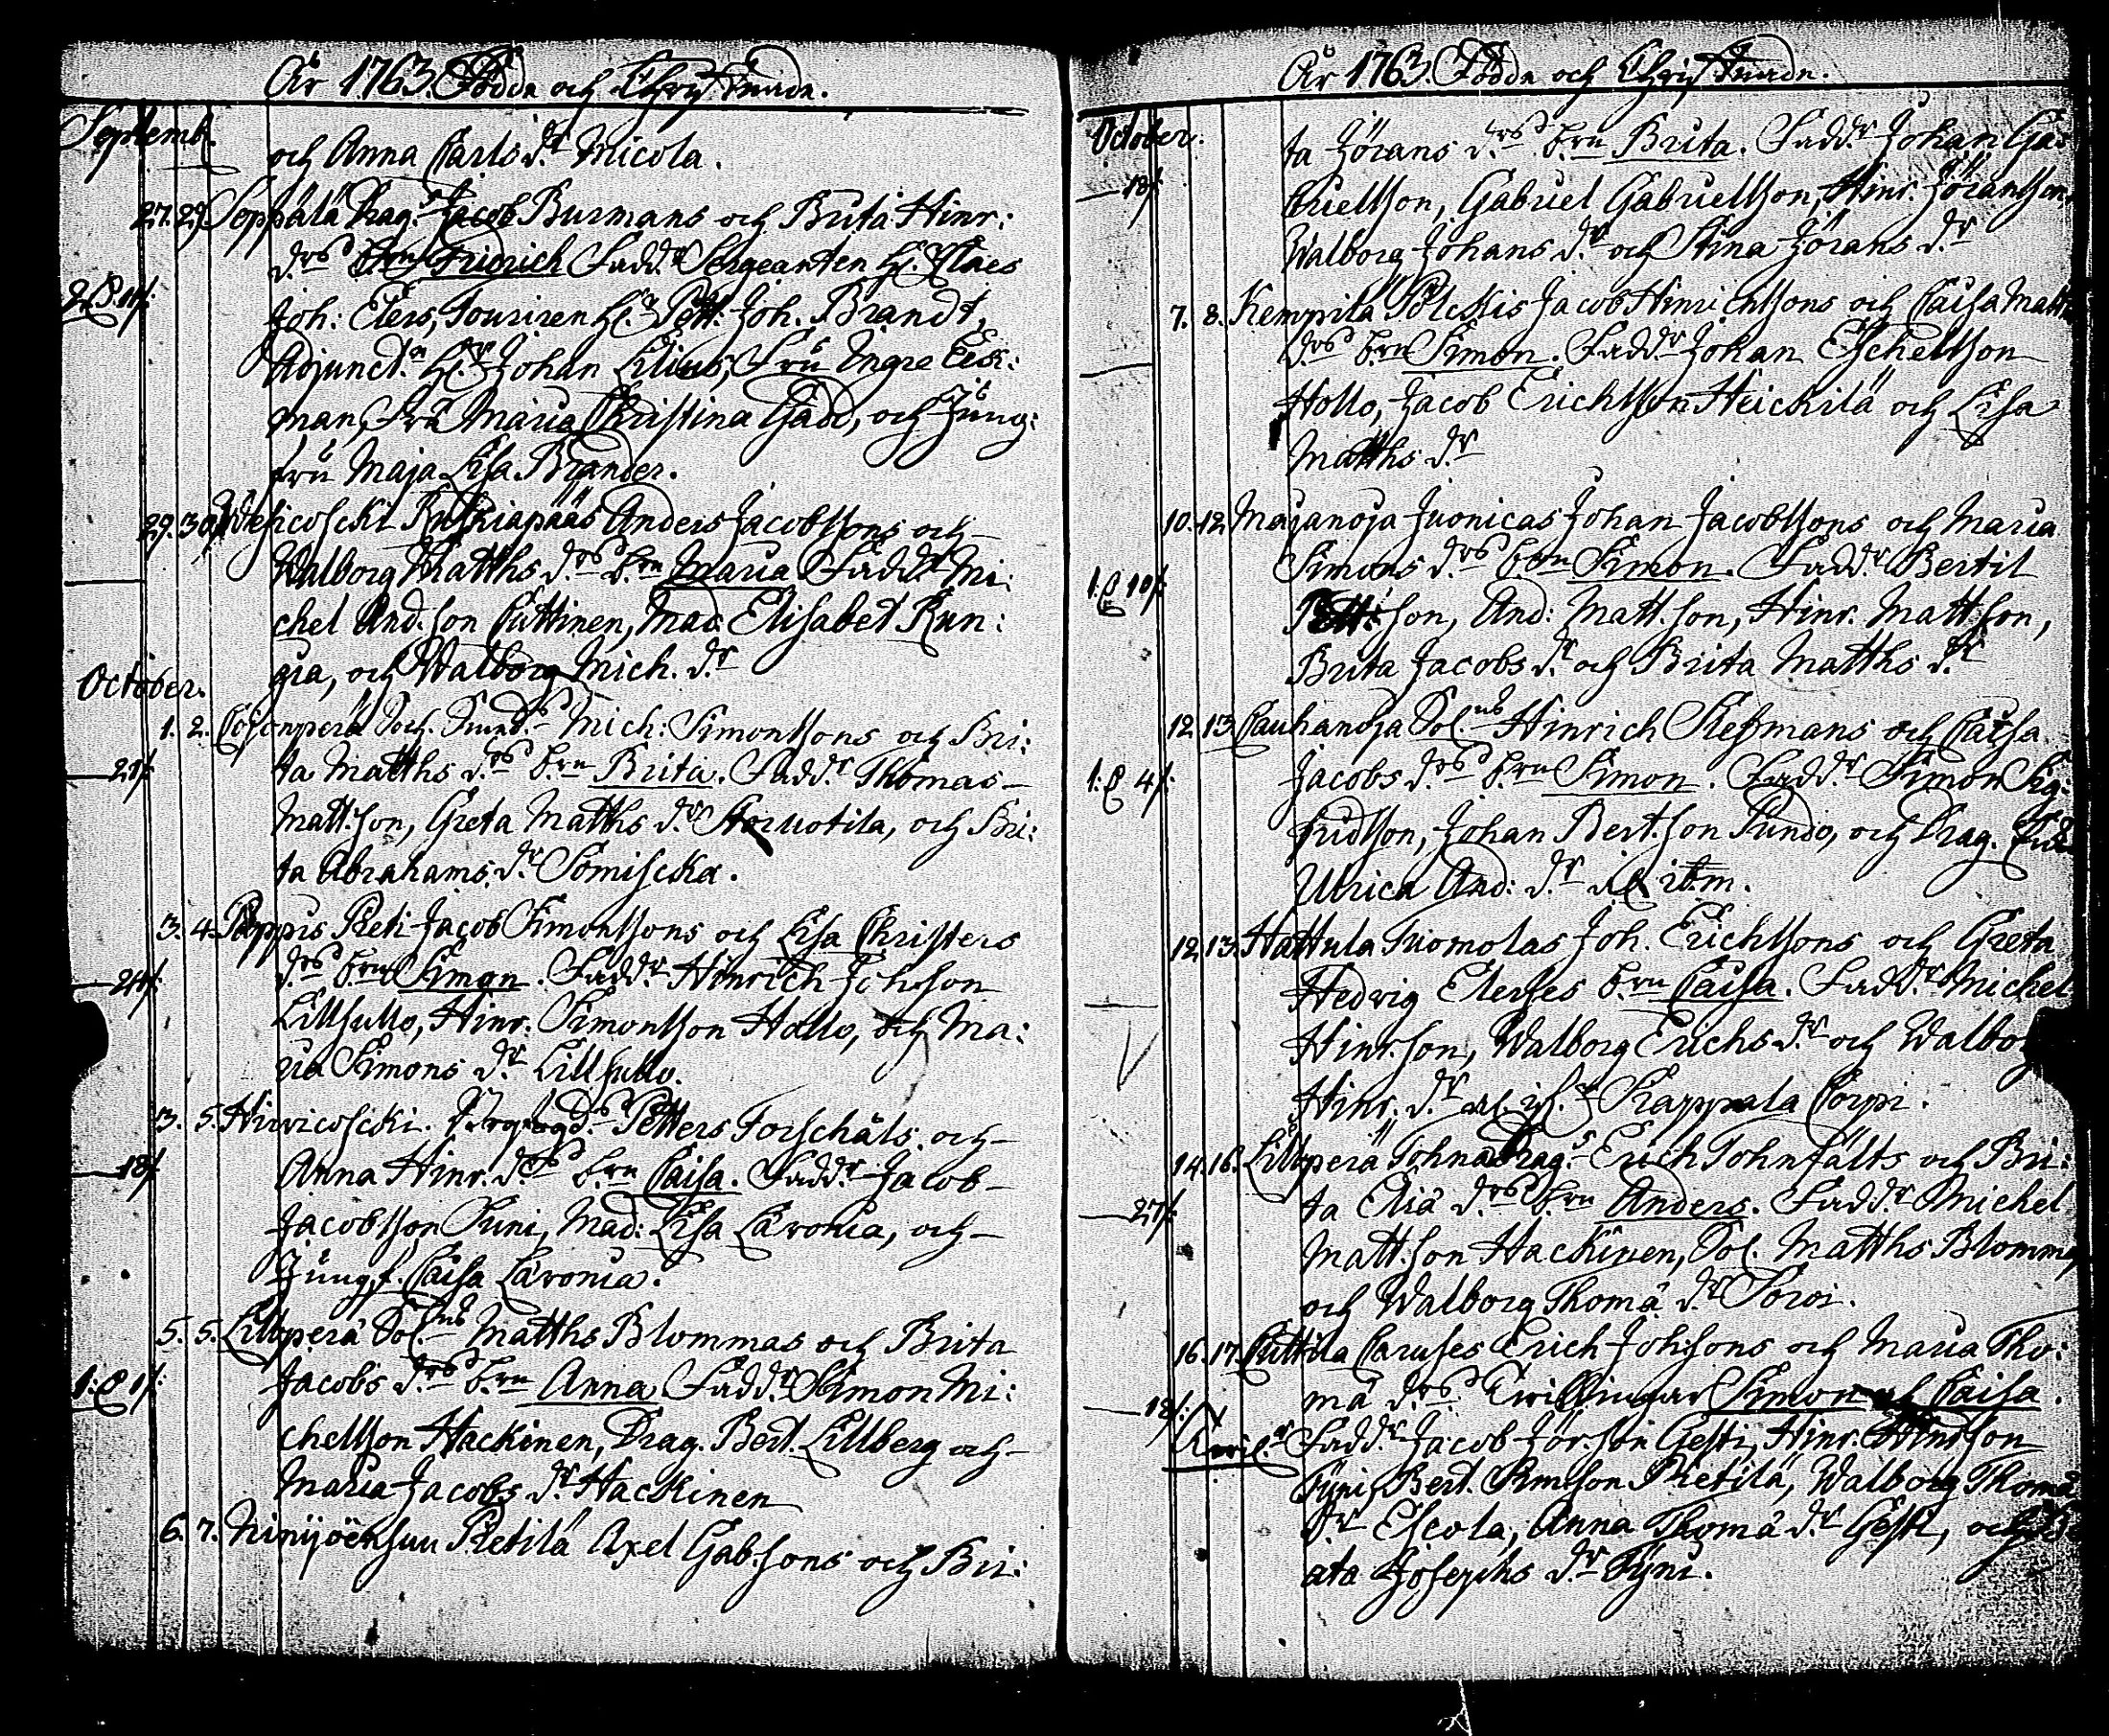 År 1763. Födda och Christnada.
Septemb.
och Anna Carls dr Nicola.
27. 29. Seppälä Drag:s Jacob Burmans och Brita Hinr:
drs brn Fridrich Fadd.r Sergeanten H. Claes
2 P. 11/:
Joh: Elers, H. Pett: Joh. Brandt,
Adjunct:n H.r Johan Lilius, Fru Ingre Eek:
man, Fru Maria Christina Gadd, och Jung:
fru Maja Lisa Brander.
29. 30. Anders Jacobssons och
Walborg Matths drs brn Maria Fadd.r Mi:
chel And.son Cuttinen, Mad: Elisabet Run:
gia, och Walborg Mich. dr
October.
1. 2. Mich: Simonssons och Bri:
21/:
ta Matths drs brn Brita. Fadd.r Thomas
Matt.son, Greta Matths dr, och Bri:
ta Abrahams dr Somiscka.
3. 4. Pappis Peti Jacob Simonssons och Lisa Christers
24/:
drs brn Simon. Fadd.r Hinrich Joh.son
Lillhullo, Hinr. Simonsson Hollo, och Ma:
ria Simons dr Lillhullo.
3. 5. Hirvicoscki. Petters Forschäls och
18/:
Anna Hinr. drs brn Caisa. Fadd.r Jacob
Jacobsson Juni, Mad: Lisa Lävonia, och
Jungf. Caisa Lävonia.
5. 5. Lillperä Sol.ns Matths Blommas och Brita
1: P 1/:
Jacobs drs brn Anna. Fadd.r Simon Mi:
chelsson Hackinen, Drag. Bert. Lillberg och
Maria Jacobs dr Hackinen
6. 7. Ninijöensuu Pietilä Axel Gab.sons och Bri:
År 1763 Födda och Christnada.
October.
ta Jörans drs brn Brita. Fadd.r Johan Ga:
18/:
brielsson, Gabriel Gabrielsson, Hinr. Jöransson,
Walborg Johans dr och Stina Jörans dr
7. 8. Kempila Pölckis Jacob Hinrichssons och Caisa Matt:
drs brn Simon. Fadd.r Johan Eschelsson
Hollo, Jacob Erichsson Heickilä och Lisa
Matths dr
10. 12. Majanoja Juonicas Johan Jacobssons och Maria
Simons drs brn Simon. Fadd.r Bertil
1: P 10/:
Pett:son, And: Matt.son, Hinr. Matt.son,
Brita Jacobs dr och Brita Matths dr
12. 13. Cauhanoja Sol.ns Hinrich Resmans och Caisa
Jacobs drs brn Simon. Fadd.r Simon Sig:
1: P 4/:
fridsson, Johan Bert.son Pundo, och Drag.
Ulrica And: dr
12. 13. Hattula Tuomolas Joh. Erichssons och Greta
Hedvig Elerses brn Caisa. Fadd.r Michel
Hinr.son, Walborg Erichs dr och Walborg
Hinr. dr Kappala Corpi.
14. 16. Lillperä Tohna Drag:s Erich Tohnfälts och Bri:
27/:
ta Eliä drs brn Anders. Fadd.r Michel
Matt.son Hackinen, Sol. Matths Blomma,
och Walborg Thomä dr Soroi.
16. 17. Cuttila Caruses Erich Joh.sons och Maria Tho:
18/:
mä drs Twillingar Simon och Caisa.
Fadd.r Jacob Jör.son Gesti, Hinr. Hinr.son
Tyni, Bert. Sim.son Pietilä, Walborg Thomä
dr Escola, Anna Thomä dr Gesti, och Be
ata Josephs dr Tyni.